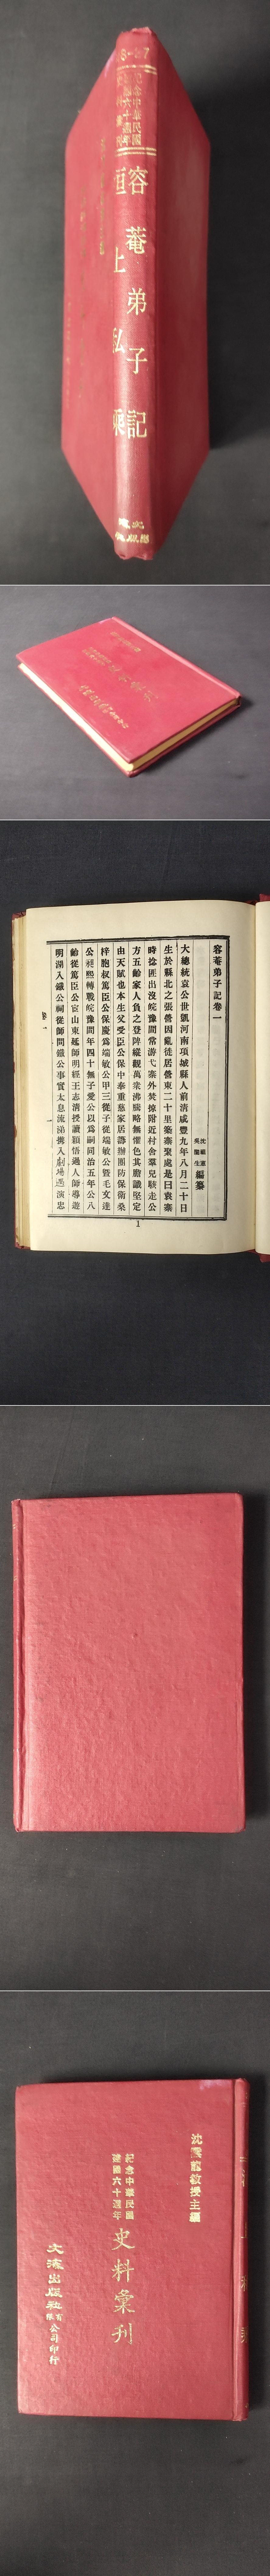 紀念中華民國
建國六十週年
容菴弟子記
洹上私乘
文海
出版社
容菴弟子記卷一
沈祖憲
吳闓生
編纂
大總統袁公世凱河南項城縣人前清咸豐九年八月二十日
生於縣北之張營因亂徙居營東二十里築寨聚處是曰袁寨
時捻匪出沒皖豫間常游弋寨外焚掠附近村舍羣兒駭走公
方五齡家人負之登陴縱觀萬衆沸騰略無懼色其膽識堅定
由天賦也本生父受臣公保中奉重慈家居籌辦團防保衛桑
梓胞叔篤臣公保慶爲端敏公甲三從子從端敏公暨毛文達
公昶熙轉戰皖豫間年四十無子愛公以爲嗣同治五年公八
齡從篤臣公宦山東延師明經王志清授讀穎悟過人師導遊
明湖入鐵公祠從師問鐵公事實太息流涕携入劇場遇演忠
卷一
1
沈雲龍教授主編
紀念中華民國
建國六十週年
史料彙刊
文海出版社有限公司印行